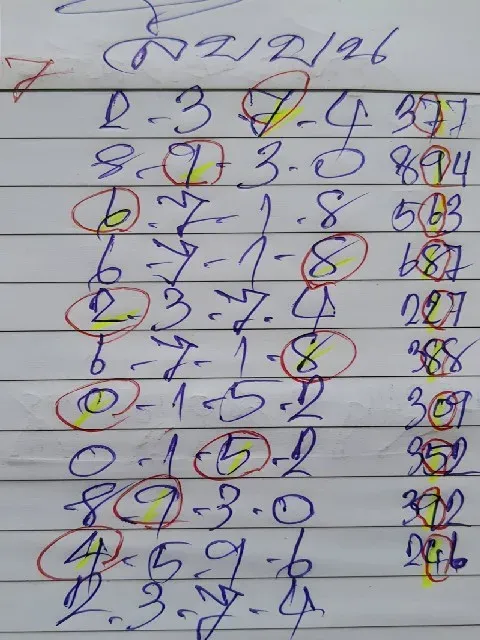 7
2/2/26
2 - 3 - 7 - 4 377
8 - 9 - 3 - 0 894
6 - 7 - 1 - 8 563
6 - 7 - 1 - 8 687
2 - 3 - 7 - 4 227
6 - 7 - 1 - 8 388
0 - 1 - 5 - 2 309
0 - 1 - 5 - 2 352
8 - 9 - 3 - 0 392
4 - 5 - 9 - 6 246
2 - 3 - 7 - 4